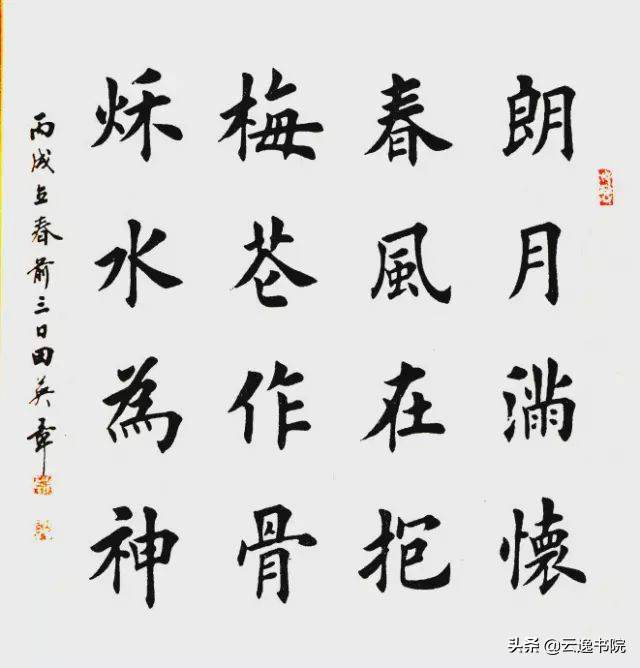 朗月滿懷
春風在抱
梅花作骨
秋水為神
丙戌立春前三日田英章
头条 @云逸书院